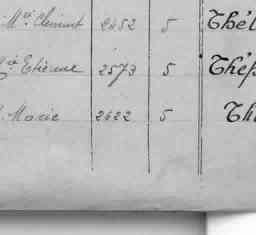 Mce Clément 2452 5 Thél
Etienne 2573 5 Thép
Marie 2622 5 Thi